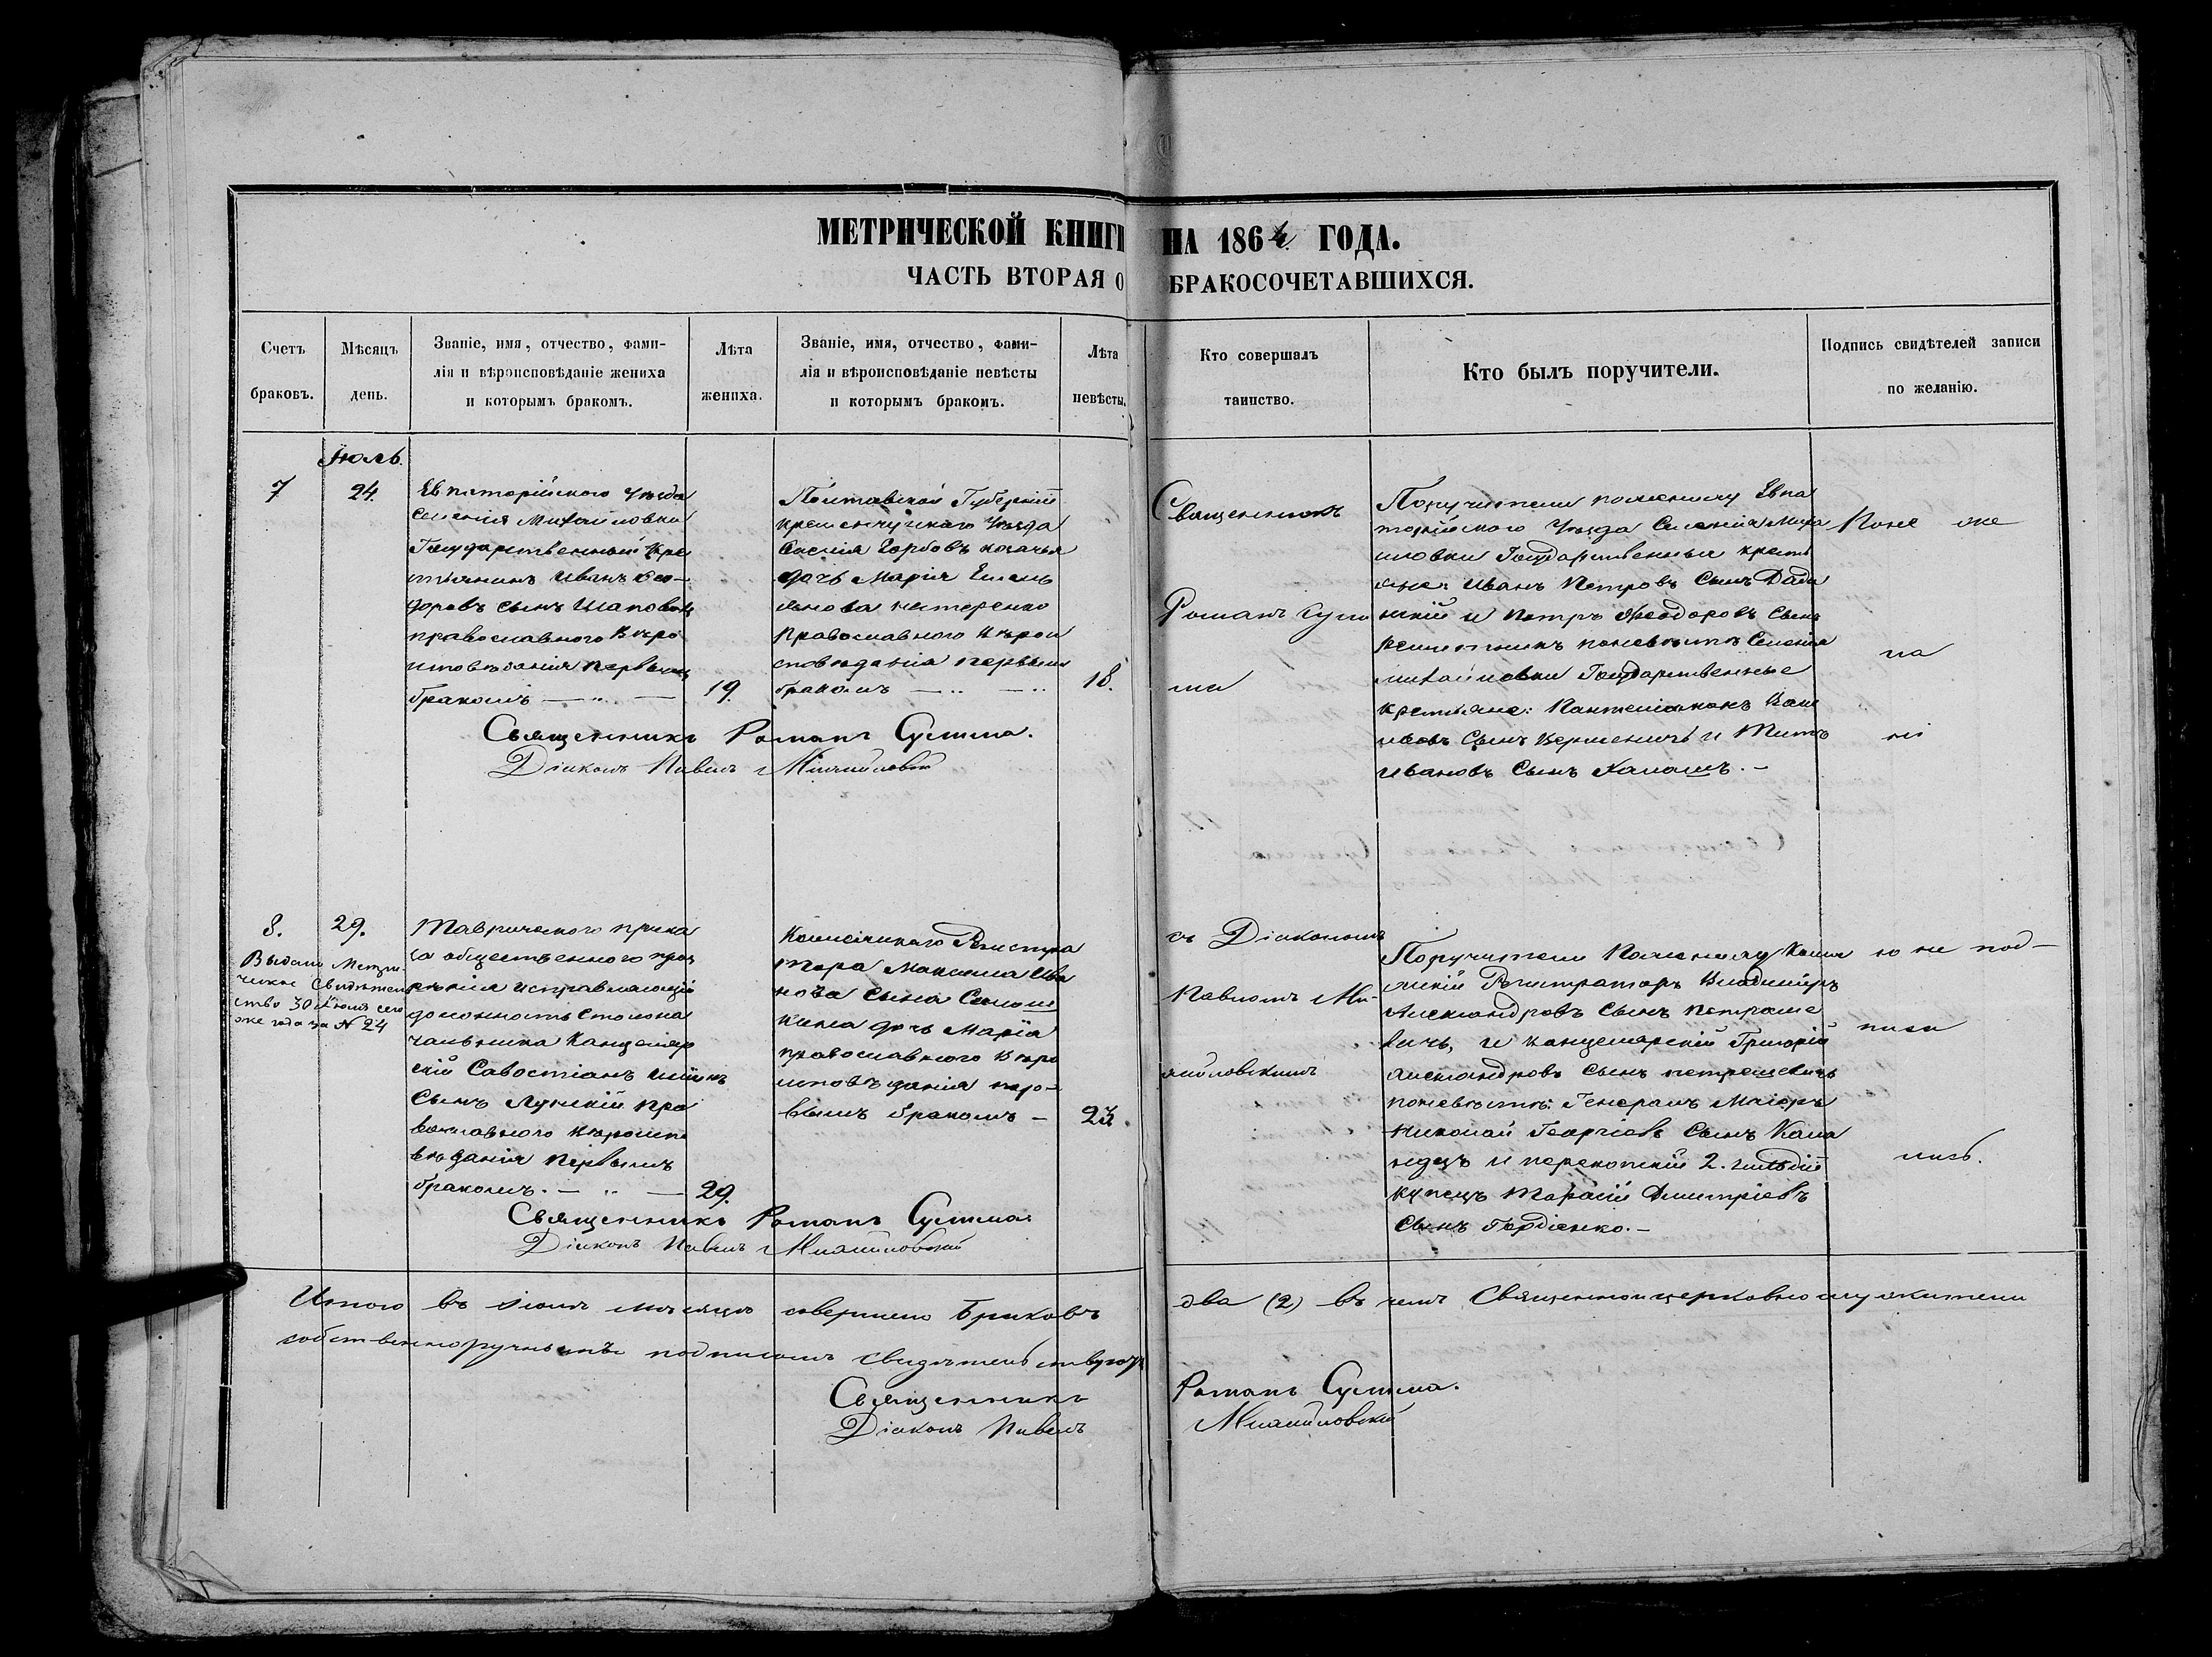 МЕТРИЧЕСКОЙ КНИГИ НА 1864 ГОДА.
ЧАСТЬ ВТОРАЯ О БРАКОСОЧЕТАВШИХСЯ.
Счетъ браковъ.
Мѣсяцъ день.
Званіе, имя, отчество, фами-
лія и вѣроисповѣданіе жениха
и которымъ бракомъ.
Лѣта жениха.
Званіе, имя, отчество, фами-
лія и вѣроисповѣданіе невѣсты
и которымъ бракомъ.
Лѣта невѣсты.
Кто совершалъ
таинство.
Кто былъ поручители.
Подпись свидѣтелей записи
по желанію.
Іюль.
7
24.
Евпаторійского Уѣзда
Селенія Михайловки
Государственный Кре
стьянинъ Иванъ Ѳео-
доровъ сынъ
православного Вѣро
исповѣданія первымъ
бракомъ — „ —
19.
Полтавской Губерніи
Кременчугскаго Уѣзда
Горбовъ козачья
дочь Марія Емель
янова нестеренко
Православного Вѣрои
сповѣданія первымъ
бракомъ — „ — „
18.
Священникъ Романъ Сулима.
Діаконъ Павелъ
Священникъ
Романъ Сули
ма
Поручители пожениху Евпа
торійского Уѣзда Селенія Миха
иловки Государственныя кресть
яне: Иванъ Петровъ Сынъ
и Петръ Ѳеодоровъ Сынъ
поневѣстѣ Селенія
михайловки Государственные
крестьяне:
Сынъ и Титъ
Ивановъ Сынъ
Коне же
ла
ні
8.
29.
Выдано Метри-
ческое Свидѣтель
ство 30 Іюля сего
же года за № 24
Таврическаго прика
за общественного приз
рѣнія исправляющій
должность Столона
чальника Канцеляр
скій Савостіанъ
Сынъ Лускій пра
вославного вѣроиспо
вѣданія первымъ
бракомъ. — „ —
29.
Коллежскаго Регистра
тора Максима Ива
нова сына
дочь Марія
православного Вѣро
исповѣданія пер-
вымъ бракомъ —
23.
Священникъ Романъ Сулима.
Діаконъ Павелъ
съ Діакономъ
Павломъ
Поручители Пожениху Колл
ежскій Регистраторъ Владиміръ
Александровъ Сынъ Петраше
вичъ, и канцелярскій Григорій
александровъ Сынъ петрашевичъ
поневѣстѣ: Генералъ Маіоръ
Николай Георгіевъ Сынъ
и перекопскій 2. гильдіи
купецъ Тарасій Дмитріевъ
Сынъ Гордіенко. —
ю не под-
писа
лись.
Итого въ іюлѣ мѣсяцѣ совершено Браковъ два (2) въ чемъ Священноицерковнослужители
собственноручнымъ подписомъ свидѣтельствуютъ
Священникъ Романъ Сулима.
Діаконъ Павелъ